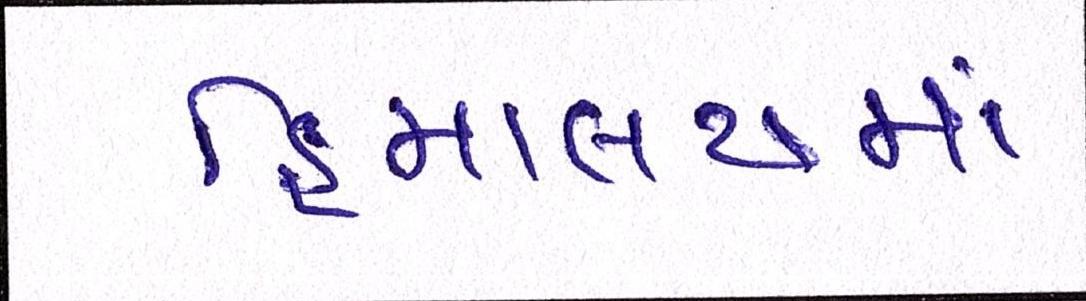 હિમાલયમાં